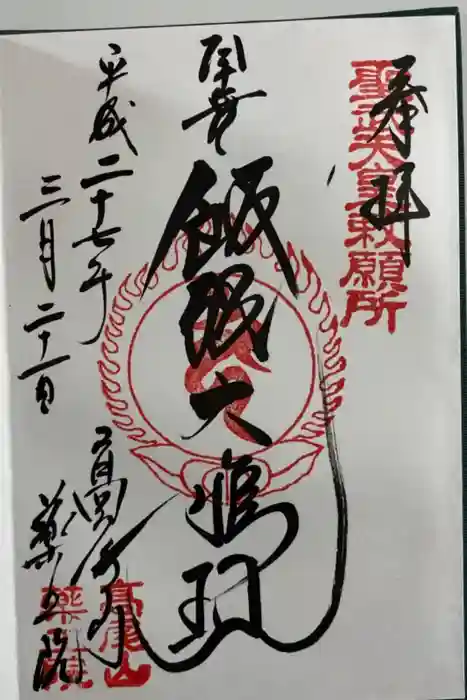 奉拝
聖武天皇勅願所
飯縄大権現
平成二十七年
三月二十一日
高尾山
薬王院
高尾山
薬王院